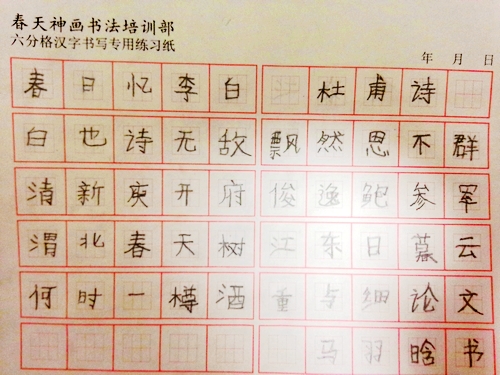 春天神画书法培训部
六分格汉字书写专用练习纸
年 月 日
春日忆李白 杜甫诗
白也诗无敌 飘然思不群
清新庾开府 俊逸鲍参军
渭北春天树 江东日暮云
何时一樽酒 重与细论文
马羽晗书